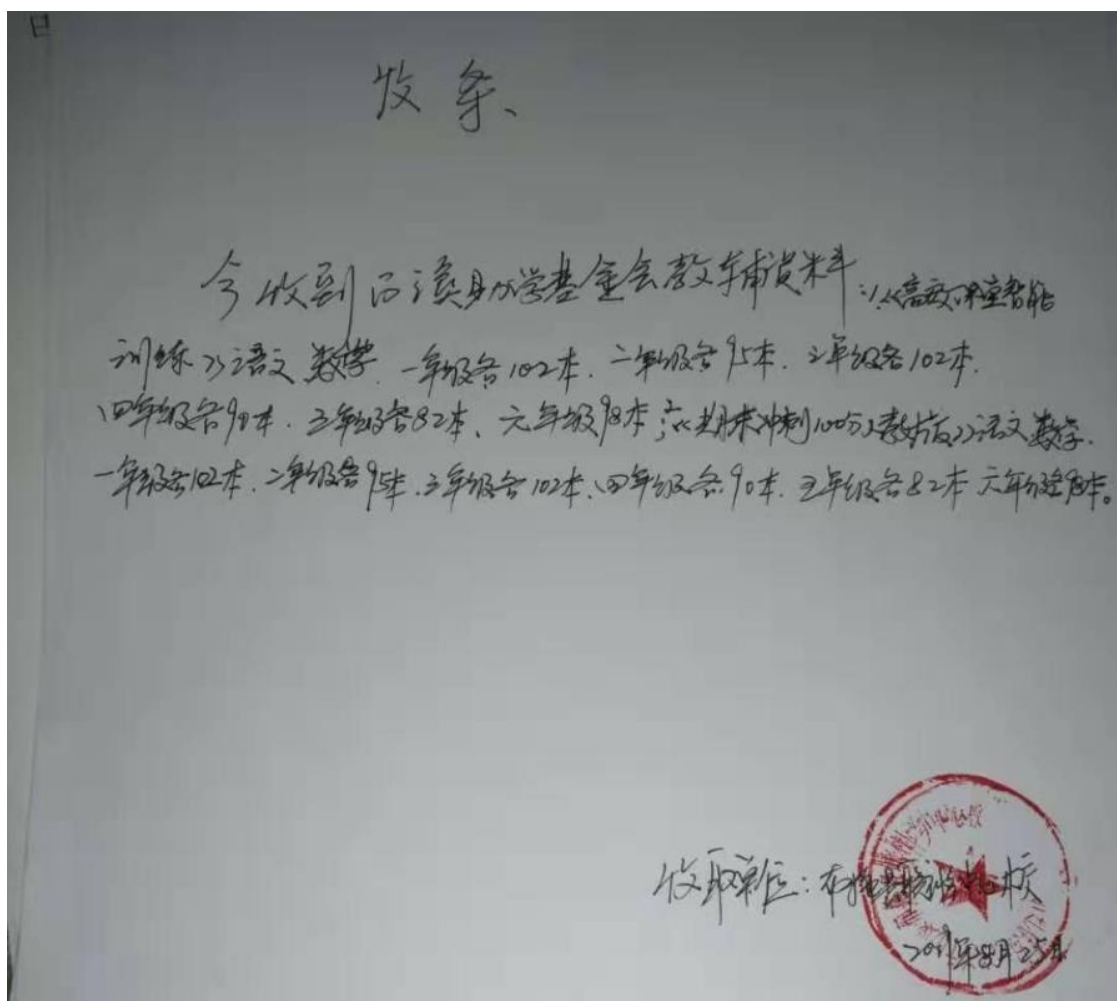 日
收条、
今收到西溪助学基金会教辅资料:1.《高效课堂智能
训练》语文 数学 一年级各102本、二年级各95本、三年级各102本、
四年级各90本、五年级各82本、六年级98本;2.《期末冲刺100分》语文 数学、
一年级各102本、二年级各95本、三年级各102本、四年级各90本、五年级各82本 六年级各98本。
收取单位:布拖县 校
年8月25日